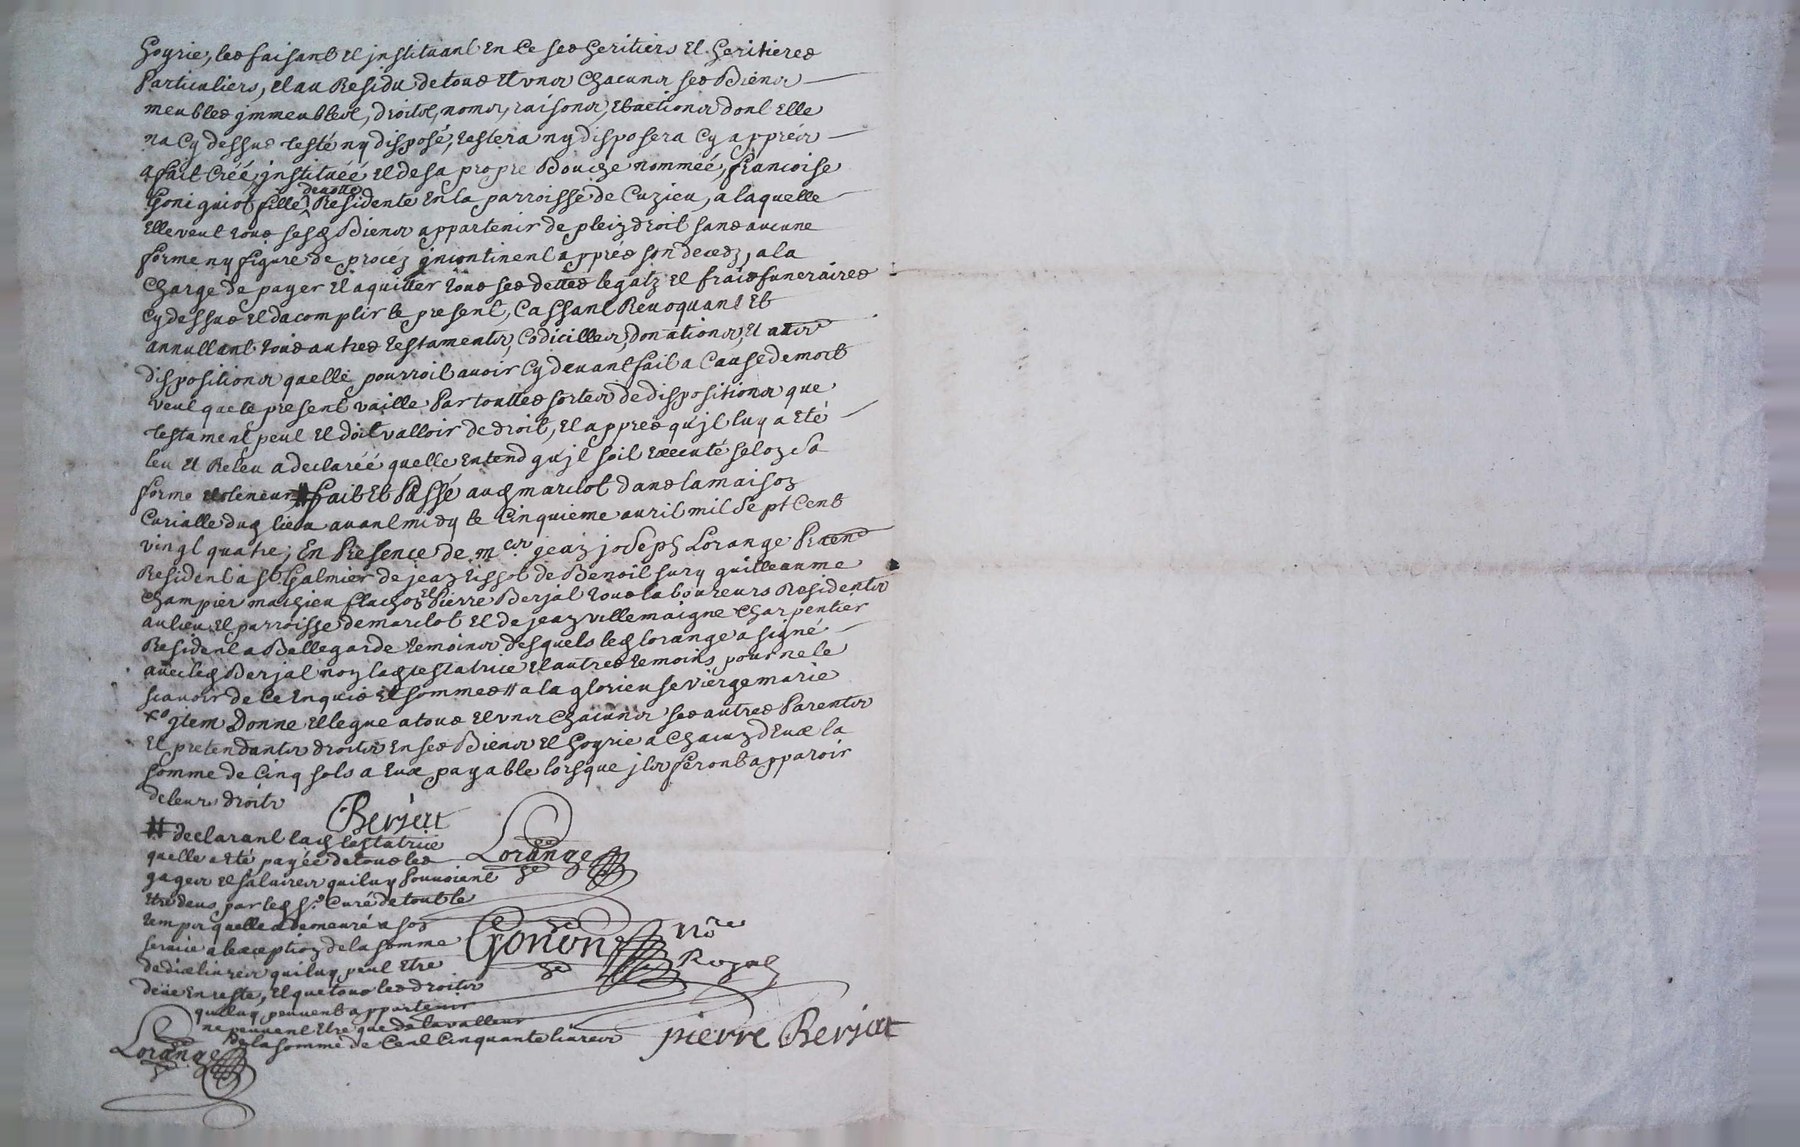 hoyrie, les faisant et jnstituant en ce ses heritiers et heritieres
particuliers, et au Residu de tous et uns chacuns ses Biens
meubles jmmeubles, droits, noms, raisons, et actions dont elle
na cy dessus testé ny disposé, testera ny disposera cy apprés
a fait créé, jnstituéé et de sa propre Bouche nomméé, francoise
fille Residente en la parroisse de Cuzieu, a laquelle
elle veut tous sesd Biens appartenir de plein droit sans aucune
forme ny figure de procéz jncontinent apprés son decedz, a la
charge de payer et aquitter tous ses dettes legatz et frais funeraires
cy dessus et dacomplir le present, Cassant Revoquant et
annullant tous autres testaments, Codicilles, donations, et autres
dispositions quelle pourroit avoir cy devant fait a Cause de mort
veut que le present vaille par touttes sortes de dispositions que
testament peut et doit valloir de droit, et appres qu'jl luy a eté
leu et Releu a declaréé quelle entend qu'jl soit executé selon sa
forme et teneur # fait et passé aud marclot dans la maison
Curialle dud lieu avant midy le Cinquieme avril mil sept Cent
vingt quatre; En Presence de jean joseph Lorange
Resident a st Galmier de jean tissot de Benoit sury guilleaume
champier mathieu flachon et Pierre Berjat tous laboureurs Residents
au lieu et parroisse de marclot et de jean villemaigne charpentier
Resident a Bellegarde temoins desquels led lorange a signé
avec led Berjat non lad testatrice et autres temoins pour ne le
scavoir de ce enquis et sommes # a la glorieuse vierge marie
jtem Donne et legue a tous et uns chacuns ses autres Parents
et pretendants droits en ses Biens et hoyrie a chacun d'eux la
somme de Cinq sols a eux payable lorsque jls feront apparoir
de leurs droits
Berjat
# declarant lad testatrice
quelle a eté payéé de tous les
gages et salaires qui luy pouvoient
etre deus par led Sr Curé de tout le
temps quelle a demeuré a son
service a lexception de la somme
de dix livres qui luy peut etre
deüe en reste, et que tous les droits
qui luy peuvent appartenir
ne peuvent etre que de la valleur
de la somme de Cent Cinquante livres
Lorange
Gonon nore
Royal
Lorange
pierre Berjat